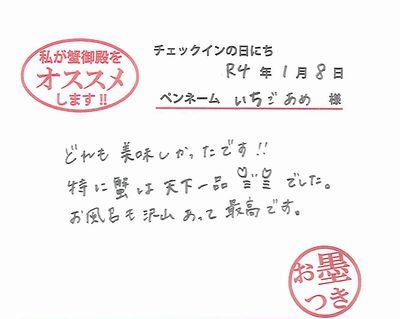 私が蟹御殿を
オススメ
します!!
チェックインの日にち
R4 年 1 月 8 日
ペンネーム いちごあめ 様
どれも 美味しかったです!!
特に蟹は天下一品でした。
お風呂も沢山あって最高です。
お墨
つき